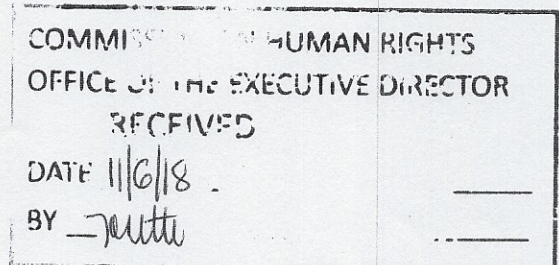 COMMISSION ON HUMAN RIGHTS
OFFICE OF THE EXECUTIVE DIRECTOR
RECEIVED
DATE 11/6/18
BY